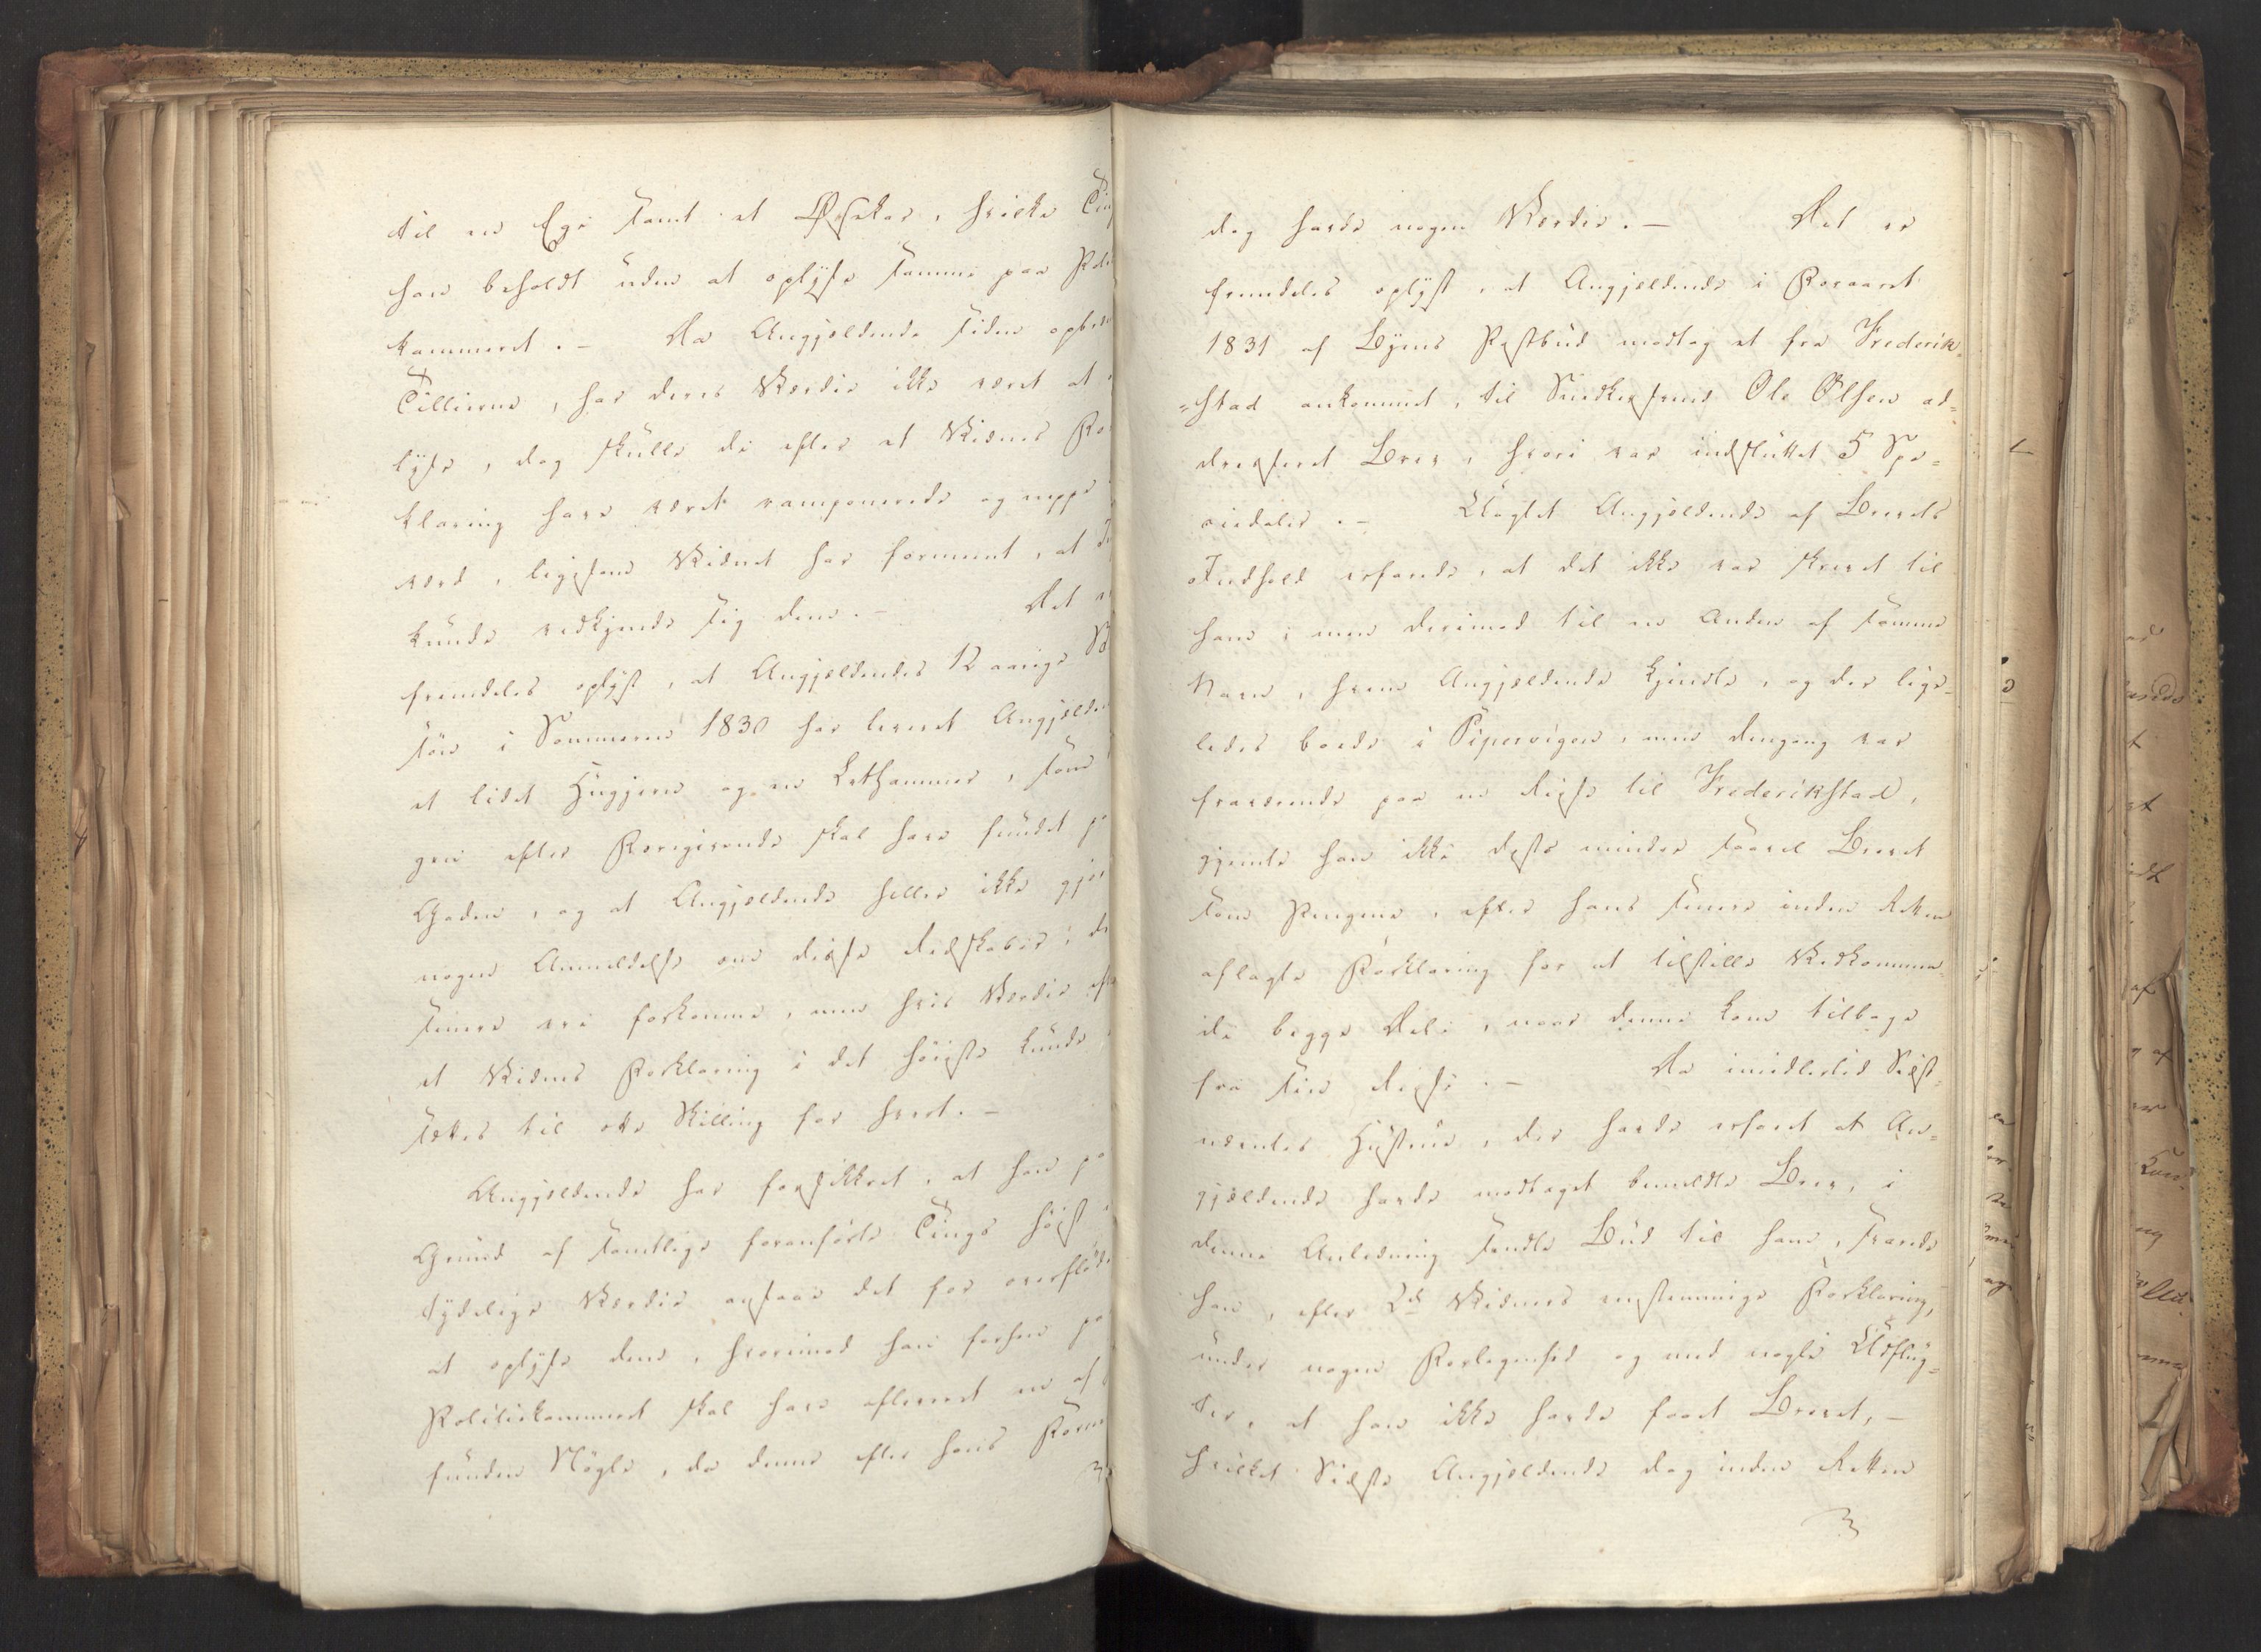 til en Ege samt et Øsekar, hvilke Tin
han beholdt uden at oplyse samme paa Poli
kammeret. - Da Angjeldende siden opbræ
Tillierne, har deres Værdie ikke været at
lyse, dog skulle de efter et Vidnes For
klaring have været ramponerede og neppe
værd, ligesom Vidnet har formeent, at In
kunde vedkjende sig dem. - Det er
fremdeles oplyst, at Angjeldendes 12 aarige
søn i Sommeren 1830 har leveret Angjelden
et lidet Huggjern og en Kathammer, som
gen efter Foregivende skal have fundet pa
Gaden, og at Angjeldende heller ikke gjor
nogen Anmeldelse om disse Redskaber, de
senere ere forkomne, men hvis Værdie eft
et Vidnes Forklaring i det høieste kunde
sættes til otte Skilling for hvert. -
Angjeldende har forsikkret, at han pa
Grund af samtlige foranførte Tings høist
tydelige Værdie ansaae det for overflødi
at oplyse dem, hvorimod han forhen pa
Politiekammeret skal have afleveret en af
funden Nøgle, da denne efter hans Forme
dog havde nogen Værdie. - Det er
fremdeles oplyst, at Angjeldende i Foraaret
1831 af Byens Postbud modtog et fra Frederik-
"stad ankommet, til Snedkersvend Ole Olsen ad-
dresseret Brev, hvori var indsluttet 5 Spe-
ciedaler. - Uagtet Angjeldende af Brevets
Indhold erfarede, at det ikke var skrevet til
ham, men derimod til en Anden af samme
Navn, hvem Angjeldende kjendte, og der lige-
ledes boede i Pipervigen, men dengang var
fraværende paa en Reise til Frederikstad,
gjemte han ikke desto mindre saavel Brevet
som Pengene, efter hans senere inden Retten
aflagte Forklaring for at tilstille Vedkommen-
de begge Dele, naar denne kom tilbage
fra sin Reise. - Da imidlertid Sidst-
nævntes Hustrue, der havde erfaret at An-
gjældende havde modtaget bemeldte Brev, i
denne Anledning sendte Bud til ham, svarede
han, efter 2de Vidners eenstemmige Forklaring,
under nogen Forlegenhed og med nogle Udflug-
ter, at han ikke havde faaet Brevet, -
hvilket Sidste Angjeldende dog inden Retten